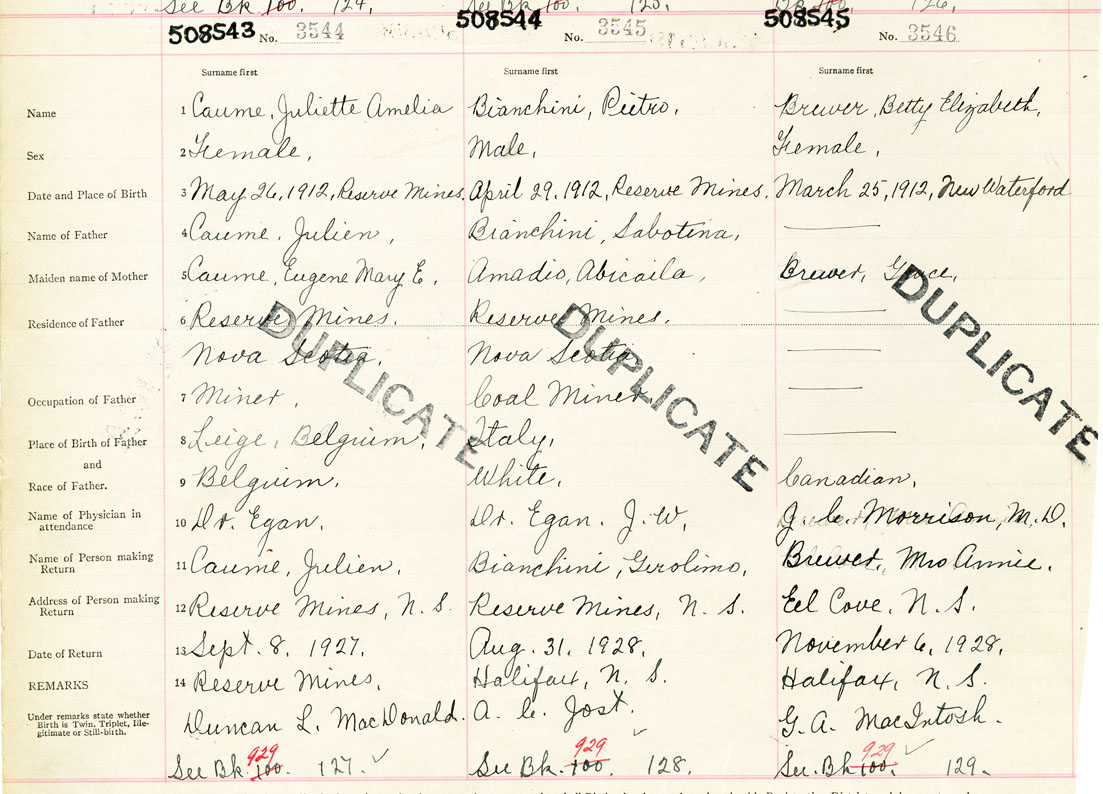 See Bk 100. 124, See Bk 100. 125, See Bk 100. 126,
508543 No. 3544 508544 No. 3545 508545 No. 3546
Surname first Surname first Surname first
Name 1 Caume, Juliette Amelia Bianchini, Pietro, Brewer, Betty Elizabeth,
Sex 2 Female, Male, Female,
Date and Place of Birth 3 May 26, 1912, Reserve Mines, April 29, 1912, Reserve Mines. March 25, 1912, New Waterford
Name of Father 4 Caume, Julien, Bianchini, Sabotina,
Maiden name of Mother 5 Caume, Eugene Mary E, Amadio, Abicaila, Brewer, Grace,
Residence of Father 6 Reserve Mines, Reserve Mines,
Nova Scotia, Nova Scotia
Occupation of Father 7 Miner, Coal Miner
Place of Birth of Father 8 Leige, Belgium, Italy,
and
Race of Father. 9 Belgium, White, Canadian,
Name of Physician in
attendance 10 Dr. Egan, Dr. Egan. J. W, J. C. Morrison, M. D.
Name of Person making
Return 11 Caume, Julien, Bianchini, Gerolimo, Brewer, Mrs Annie,
Address of Person making
Return 12 Reserve Mines, N. S. Reserve Mines, N. S. Eel Cove, N. S.
Date of Return 13 Sept. 8, 1927, Aug. 31, 1928, November 6, 1928,
REMARKS 14 Reserve Mines, Halifax, N. S. Halifax, N. S.
Under remarks state whether
Birth is Twin, Triplet, Ille-
gitimate or Still-birth. Duncan L. MacDonald. A. C. Jost. G. A. MacIntosh.
929 929 929
See Bk. 100. 127. See Bk. 100. 128. See. Bk 100. 129.
DUPLICATE DUPLICATE DUPLICATE